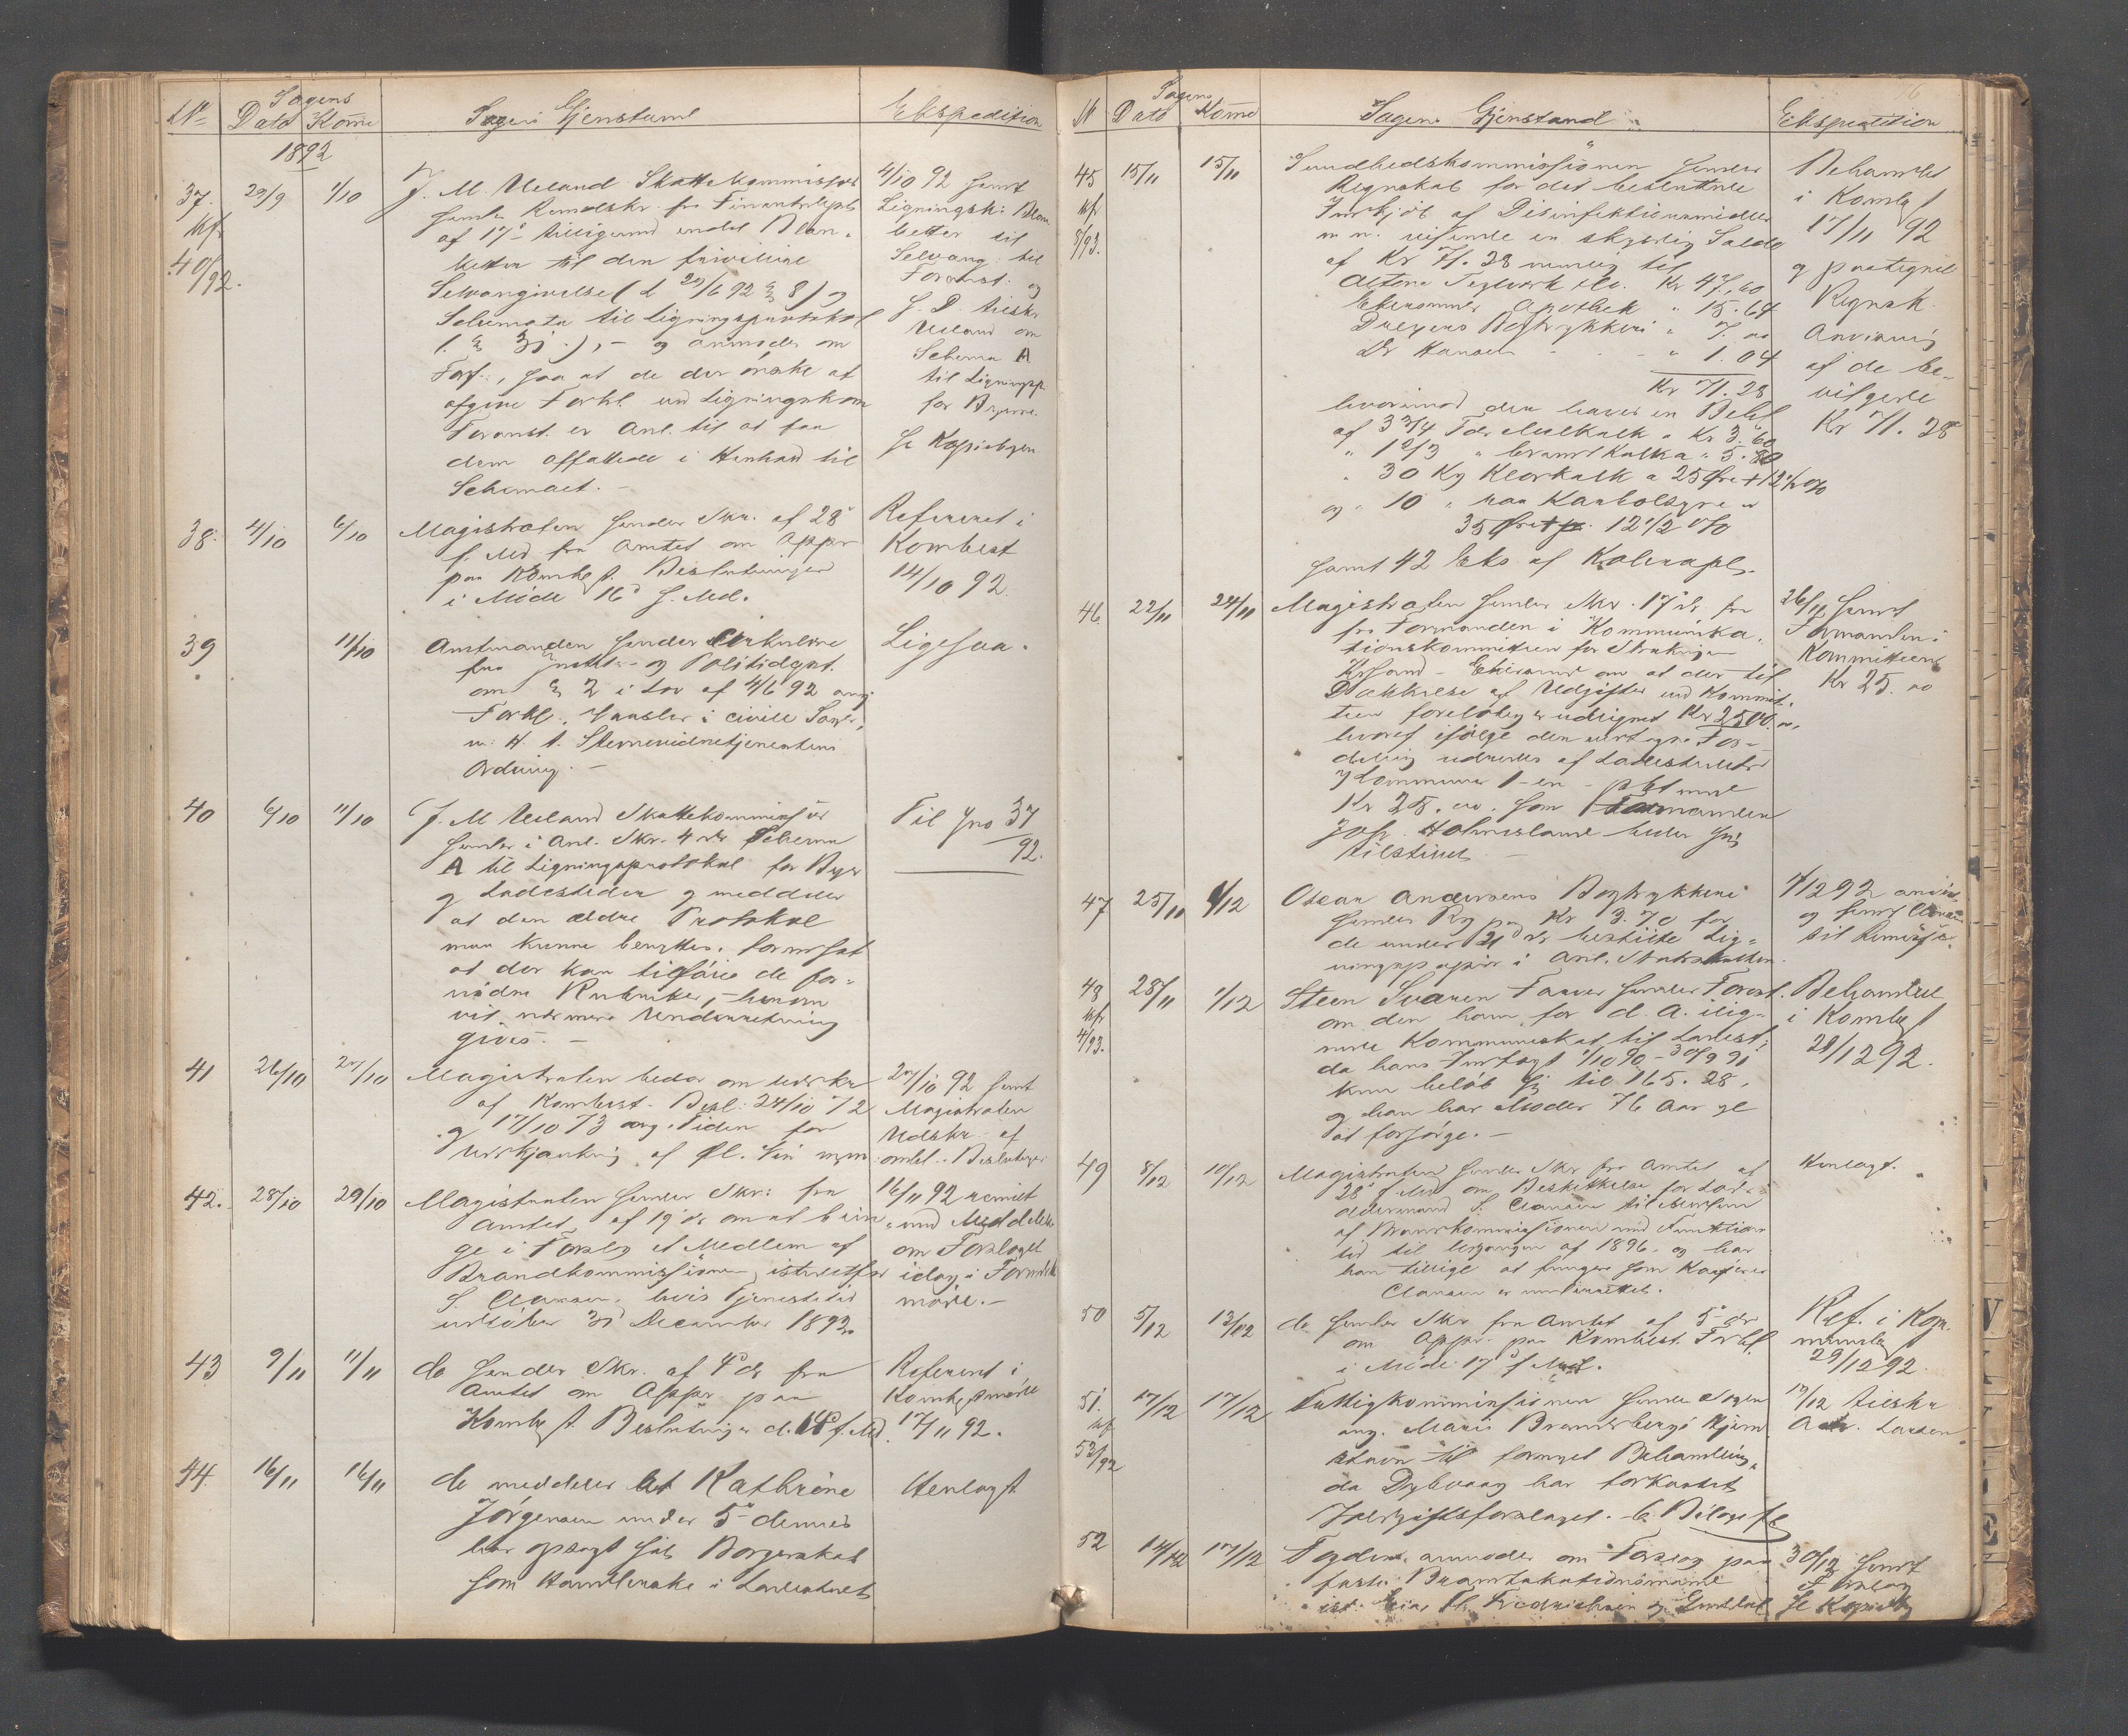 Sagens
No Dato Komne Sagens Gjenstand Ekspedition
1892
37. 29/9 1/10 J. M. Ueland Skattekommissær
sender Rundskr. fra Finantsdept.
af 17' tilligemed endel Blan-
ketter til den frivillige
Selvangivelse (L 20/6 92 § 8) og
Schemata til Ligningsprotokol
og anmoder om
Forf., saa at de der ønske at
afgive Forkl. ved Ligningskom
Foranst. er Anl. til at faa
dem affattede i Henhold til
Schemaet. -
kfr
40/92.
4/10 92 sendt
Ligningsk: Blan
ketter til
Selvang: til
Foranst. og
S. D. tilskr
Ueland om
Schema A
til Ligningsp.
for Byerne.
Se Kopiebogen
38. 4/10 6/10 Magistraten sender Skr. af 28'
f. Md fra Amtet om Appr
paa Kombest. Beslutninger
i Møde 16' f. Md.
Refereret i
Kombest
14/10 92.
39 11/10 Amtmanden sender Cirkulære
fra Justits- og Politidept.
om § 2 i Lov af 4/6 92 ang.
i civile Sager,
m: H. t. Stevnevidnetjenestens
Ordning. -
Ligesaa.
40 6/10 11/10 J. M Ueland Skattekommissær
sender i Anl. Skr. 4 ds Schema
A til Ligningsprotokol for Byer
og Ladesteder og meddeler
at den ældre Protokol
maa kunne benyttes, forudsat
at der kan tilføies de for-
nødne Rubriker, - hvorom
vil nærmere Underretning
gives. -
Til Jno 37
92.
41 26/10 27/10 Magistraten beder om Udskr
af Kombest. Besl: 24/10 72
og 17/10 73 ang. Tiden for
Udskjænkning af Øl. Vin m.m
27/10 92 sendt
Magistraten
Udskr. af
omtl. Beslutninger
42. 28/10 29/10 Magistraten sender Skr: fra
Amtet af 19' ds om at brin-
ge i Forslag et Medlem af
Brandkommissionen, istedetfor
S. Clausen, hvis Tjenestetid
udløber 31 December 1892.
16/11 92 remit
med Meddelelse
om Forslaget
idag i Formands
møde. -
43 9/11 11/11 do sender Skr. af 4' ds fra
Amtet om Appr. paa
Kombest Beslutninger d. 14' f. Md.
Refereret i
Kombestmøde
17/11 92.
44. 16/11 16/11 do meddeler at Kathrine
Jørgensen under 5' dennes
har opsagt sit Borgerskab
som Handlende i Ladestedet
Henlagt
Sagens
No Dato Komne Sagens Gjenstand Ekspedition
45 15/11 15/11 Sundhedskommissionen sender
Regnskab for det besluttede
Indkjøb af Disinfektionsmidler
m. m. visende en skyldig Saldo
af Kr 71.28 nemlig til
Kr 47,60
Apothek " 15.64
Dreyers Bogtrykkeri " 7.00
Dr Hansen " 1.04
Kr 71.28
hvorimod den haver en Behl
af 3 3/4 Tdr Mulkalk a Kr 3.60
" 1 2/3 " brændt Kalk a " 5.80
" 30 Kg Klorkalk a 25 Øre + 12 1/2 %
og " 10 " raa Karbolsyre a
35 Øre + 12 1/2 %
samt 42 Eks af Kolerapl.
kfr
8/93.
Behandlet
i Kombest
17/11 92
og paategnet
Regnsk.
Anvisning
af de be-
vilgede
Kr 71.28
46 22/11 24/11 Magistraten sender Skr. 17' ds fra
fra Formanden i Kommunika-
tionskomitteen for Strækningen
om at der til
Dækkelse af Udgifter ved Kommit
teen foreløbig er udlignet Kr 2500.00,
hvoraf ifølge den vedtagne For-
deling udredes af Ladestedets
Kommune
Kr 25.00. som Formanden
beder sig
tilstillet -
26/11 sendt
Formanden i
Kommitteen
Kr 25.00
47 25/11 1/12 Oscar Andersens Bogtrykkeri
sender Rg paa Kr 3.70 for
de under 21' ds bestilte Lig-
ningspapir i Anl. Statsskatten.
1/12 92 anvist
og sendt
til Remisse.
48 28/11 1/12 Steen Farver sender Forest.
om den ham for d. A. ilig-
nede Kommuneskat til Ladest;
da hans Indtægt 1/10 90 - 30/9 91
kun beløb sig til 165.28,
og han har Moder 76 Aar gl
at forsørge. -
kfr
4/93.
Behandlet
i Kombest
29/12 92.
49 8/12 10/12 Magistraten sender Skr fra Amtet af
28' f Md om Beskikkelse for Lod-
oldermand S. Clausen til Medlem
af Brandkommissionen med Funktions
tid til Udgangen af 1896, og har
han tillige at fungere som Kasserer
Clausen er underrettet.
Henlagt.
50 5/12 13/12 do sender Skr fra Amtet af 5' ds
om Appr. paa Kombest. Forhl.
i Møde 17' f Md.
Ref. i Kom
29/12 92.
51. 17/12 17/12 Fattigkommissionen sender Sagen
ang. Maria Brandsbergs Hjem
stavn til fornyet Behandling,
da Dybvaag har forkastet
Forligsforslaget. 6 Bilage
kfr
53/92
19/12 tilskr
Larsen
52 14/12 17/12 Fogden anmoder om Forslag paa
faste Brandtakationsmænd
ist. Elias Th. Fredriksen og
30/12 sendt
Forslag
Se Kopiebog